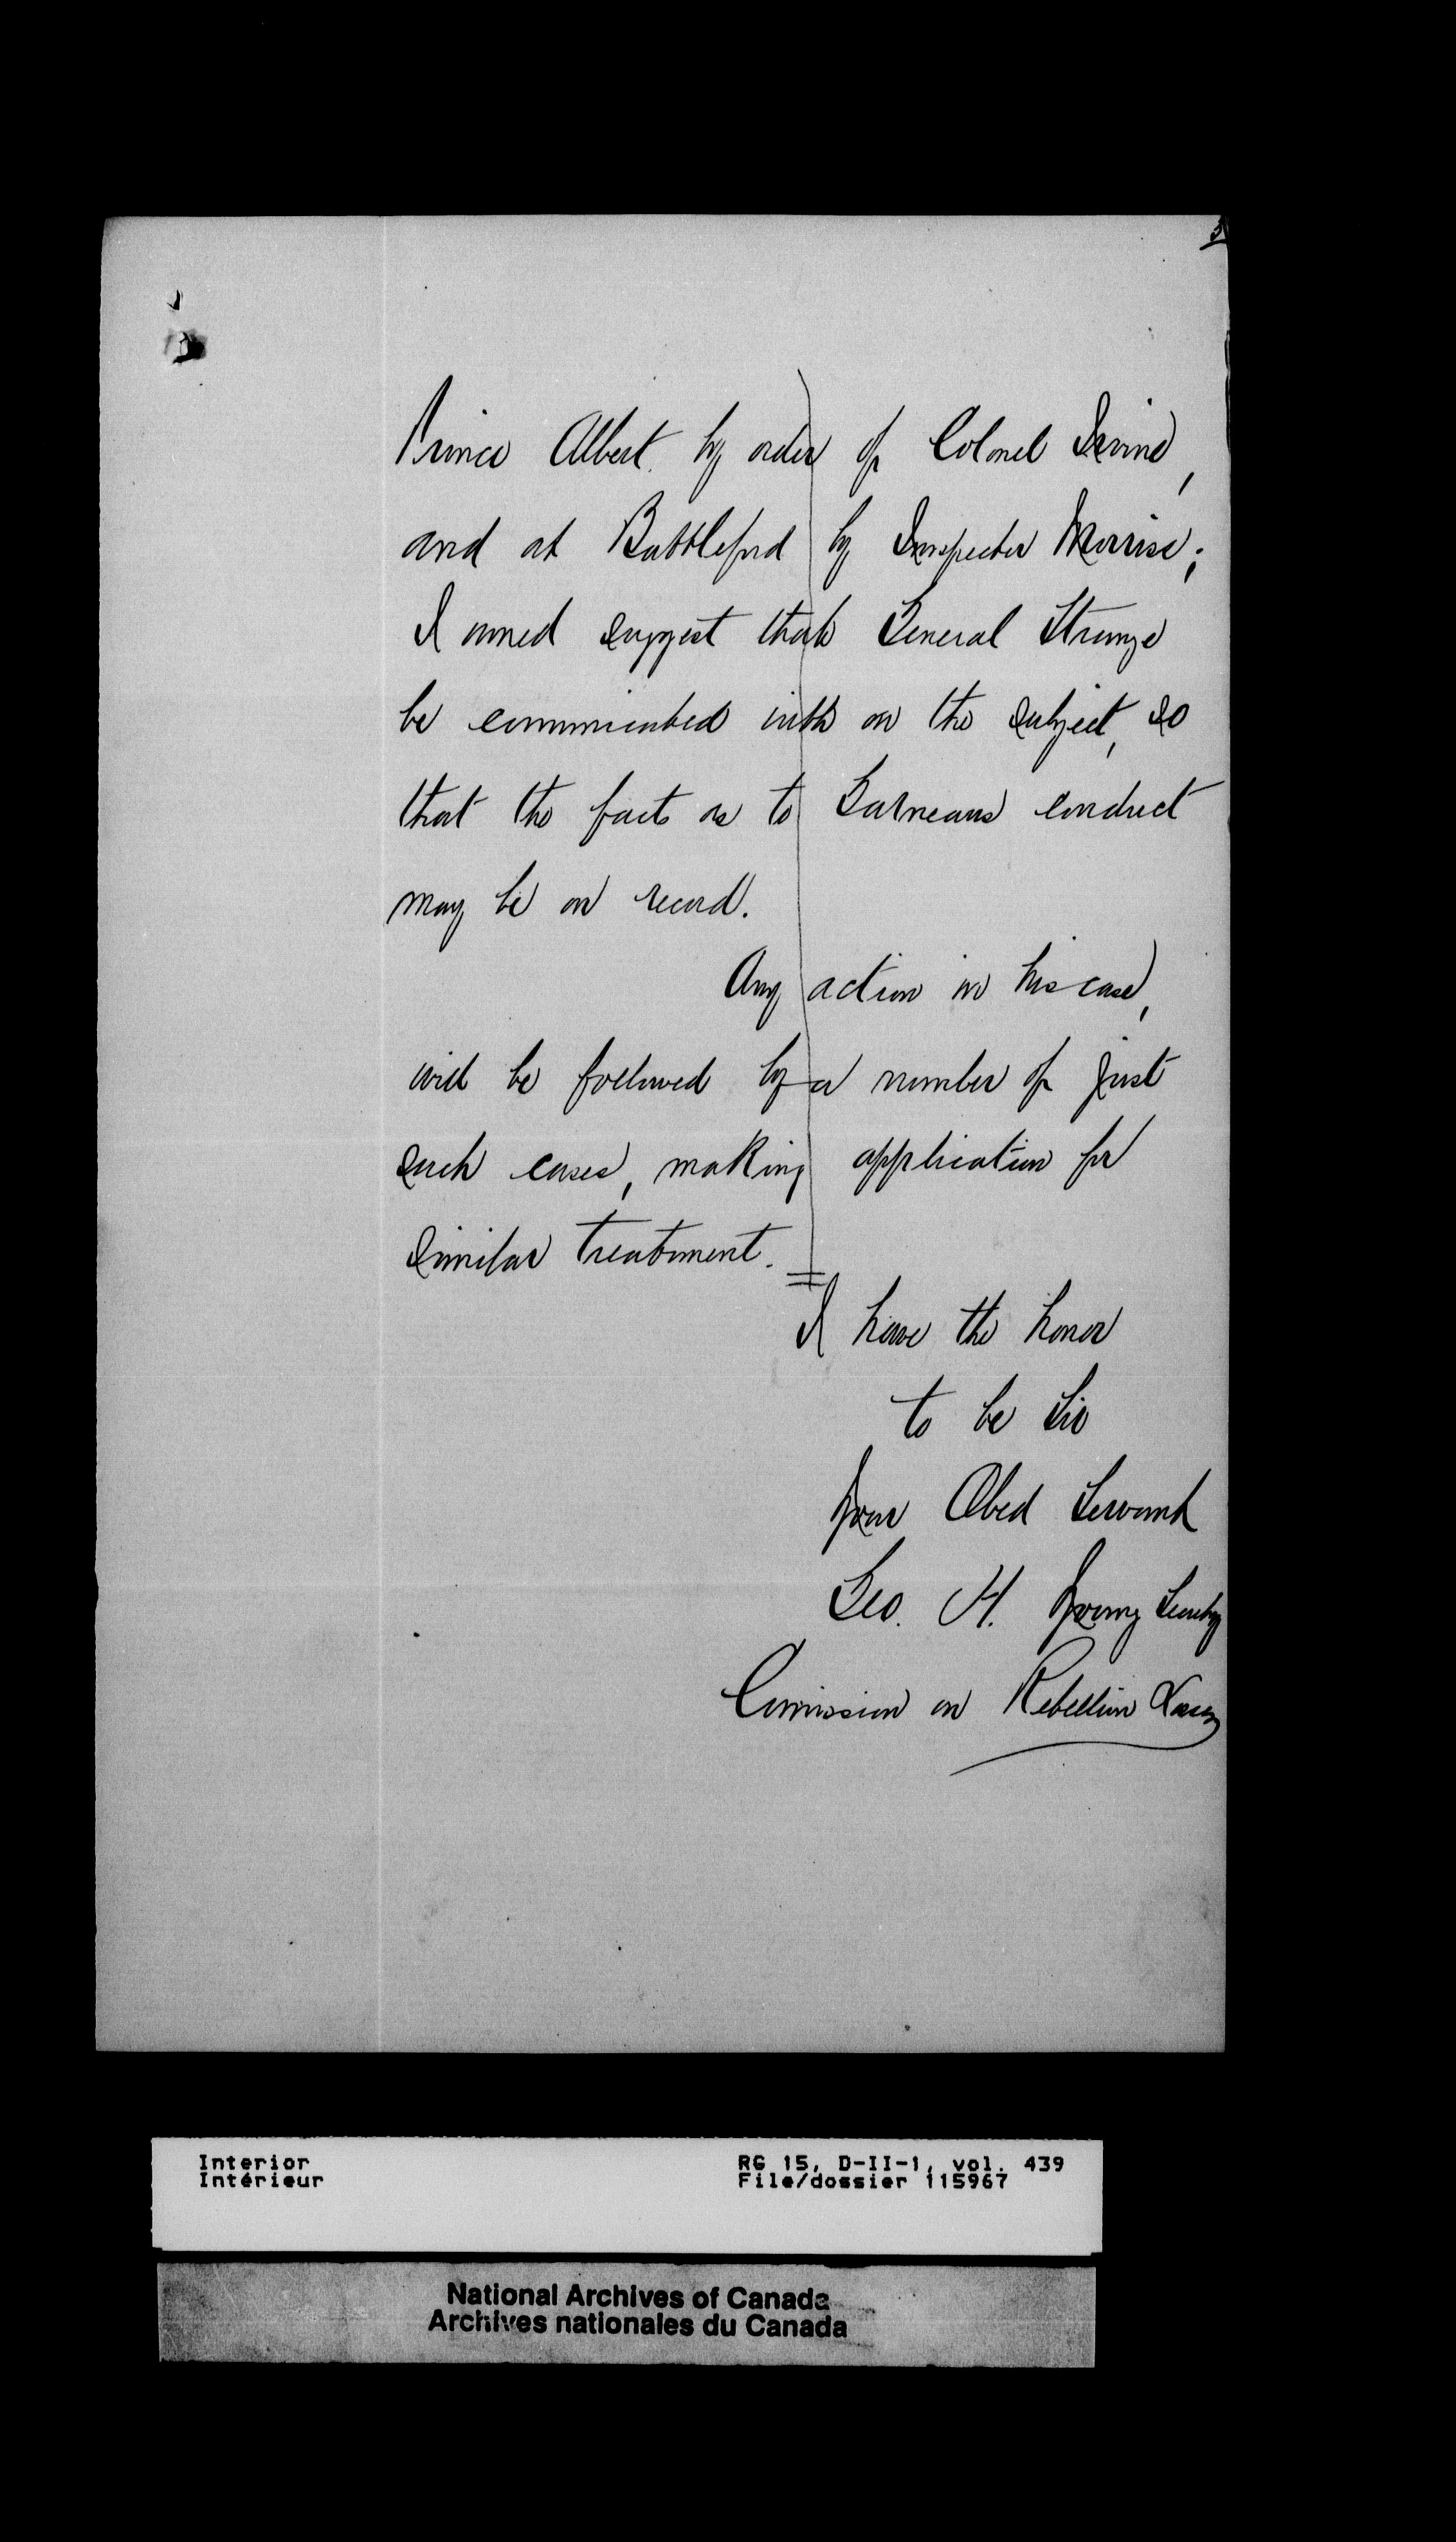 3
Prince Albert by order of Colonel Irvine,
and at Battleford by Inspector Morrise;
I would suggest that General Strange
be communicated with on the subject, so
that the facts as to Garneaus conduct
may be on record.
Any action in his case,
will be followed by a number of just
such cases, making application for
similar treatment.
I have the honor
to be Sir
Your Obed Servant
Geo. H. Young Secretary
Commission on Rebellion Losses
Interior
Intérieur
RG 15, D-II-1, vol. 439
File/dossier 115967
National Archives of Canada
Archives nationales du Canada